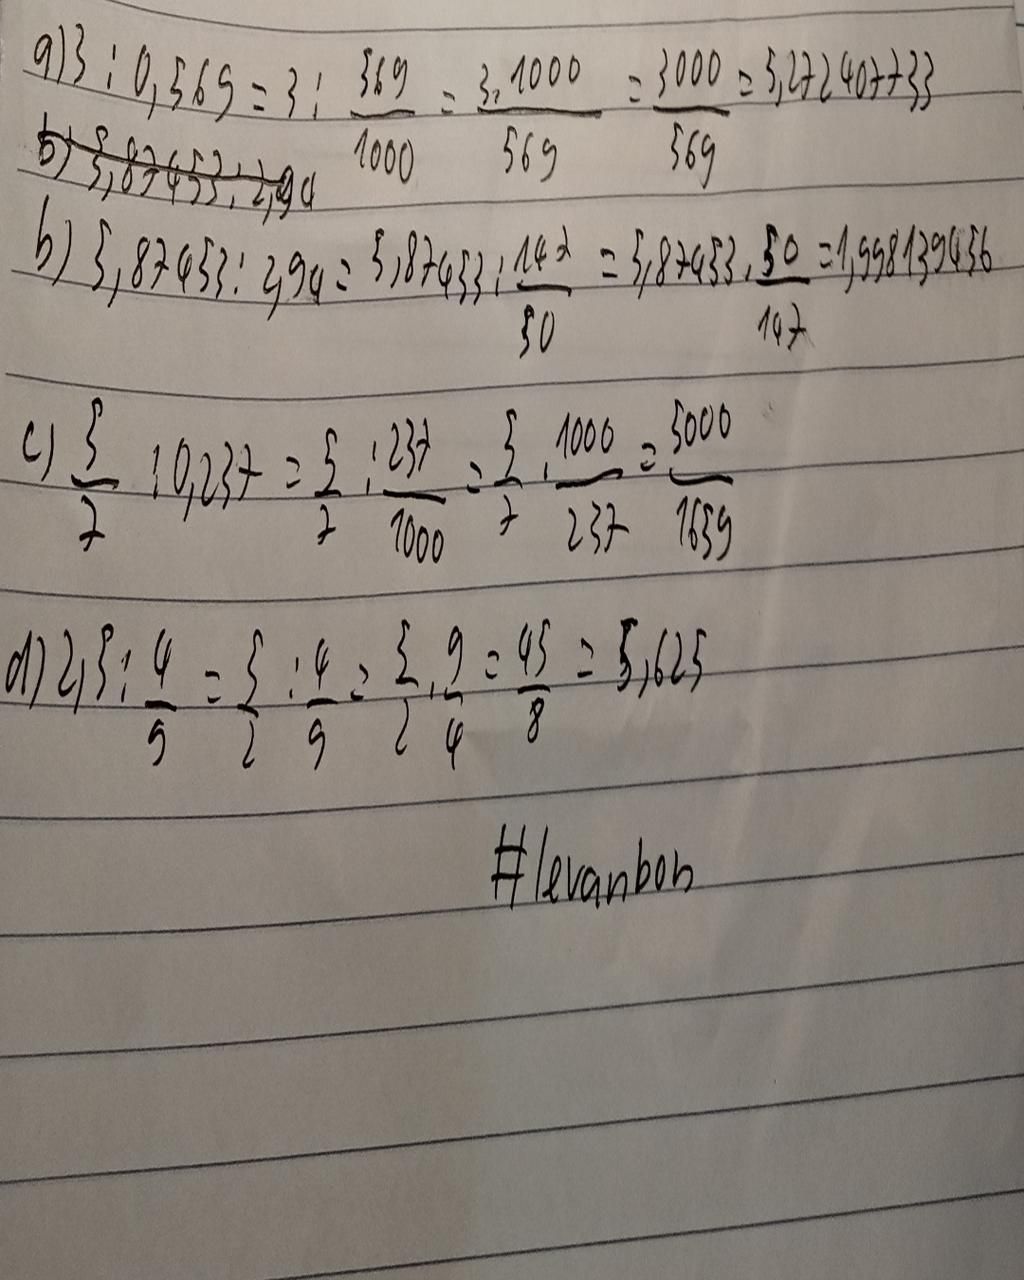 a) 3 : 0,569 = 3 : 569/1000 = 3.1000/569 = 3000/569 = 5,272407733
b) 5,87453 : 2,94
b) 5,87453 : 2,94 = 5,87453 : 147/50 = 5,87453 . 50/147 = 1,998139456
c) 5/7 : 0,237 = 5/7 : 237/1000 = 5/7 . 1000/237 = 5000/1659
d) 2,5 : 4/9 = 5/2 : 4/9 = 5/2 . 9/4 = 45/8 = 5,625
#levanboh